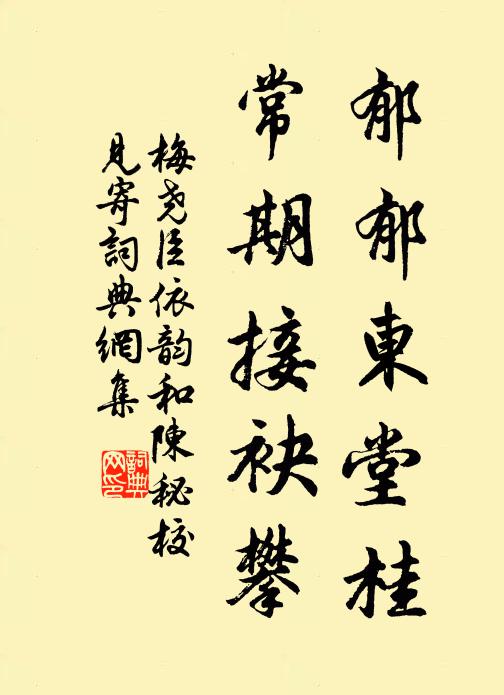 郁郁東堂桂
常期接袂攀
梅堯臣依韵和陳秘校
見寄詞典網集
詞典網印